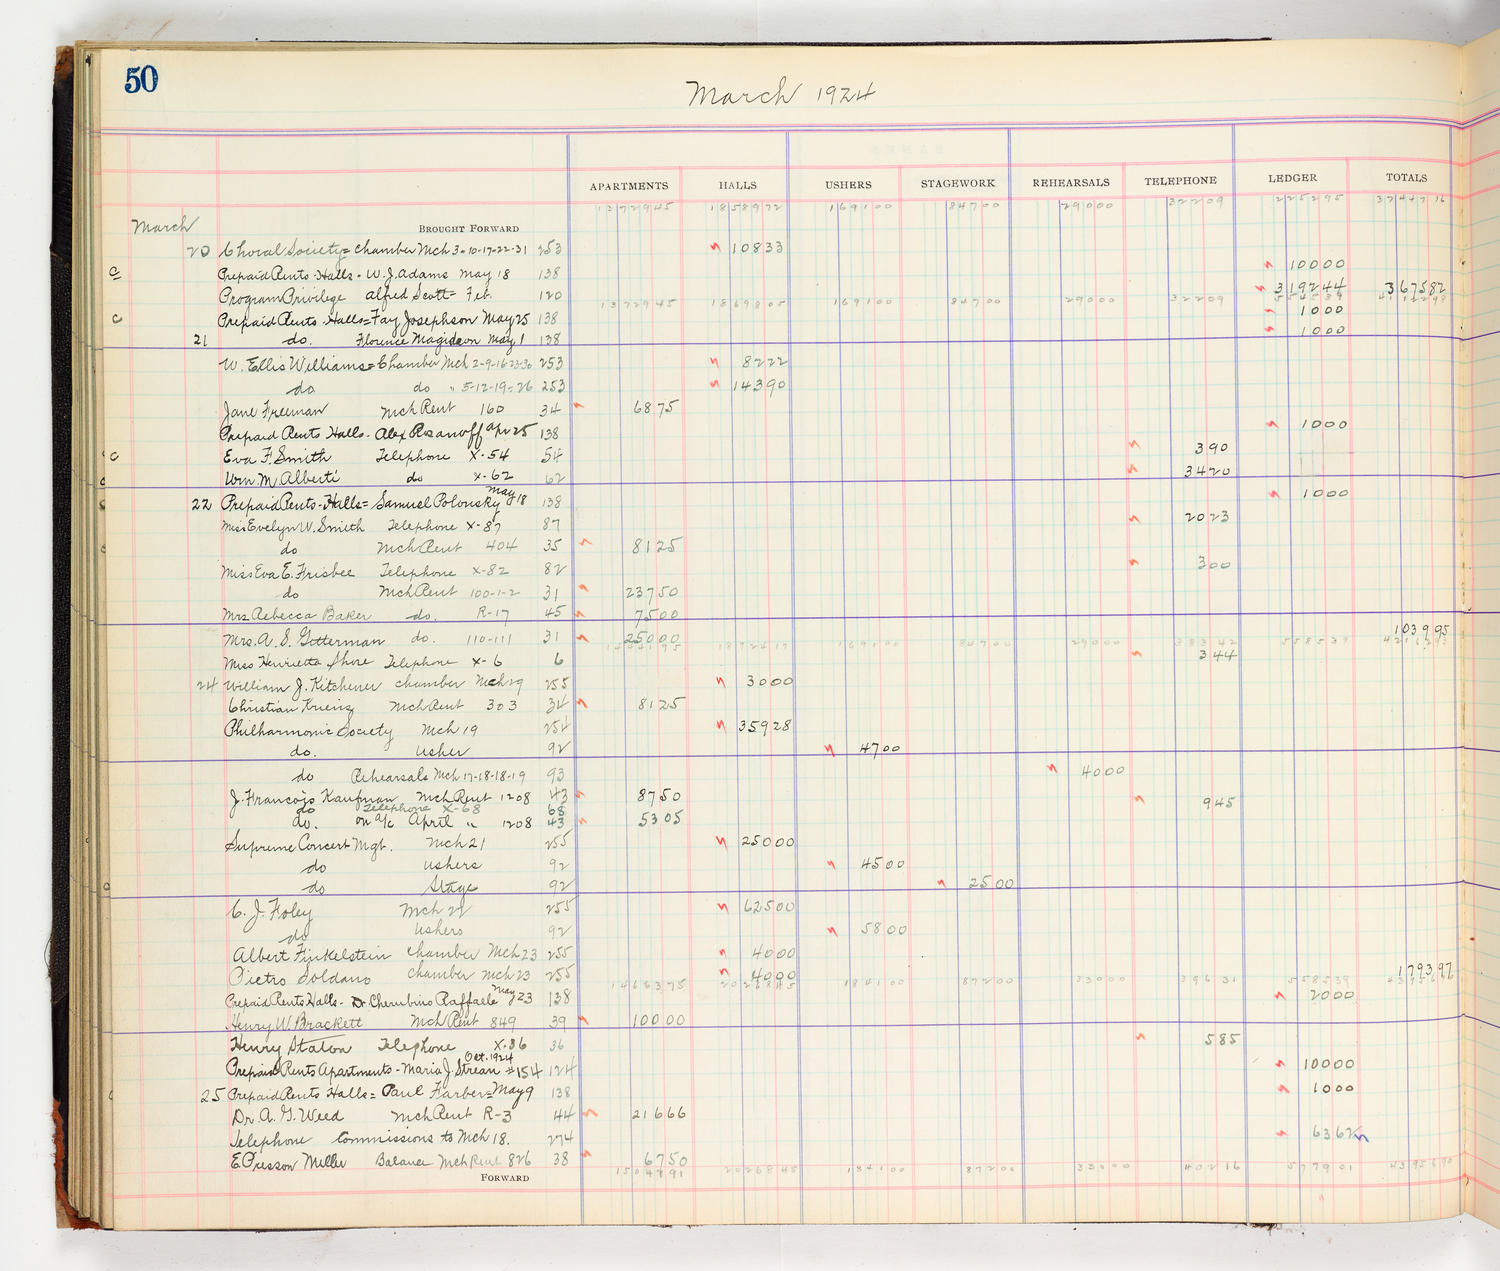 50
March 1924
APARTMENTS HALLS USHERS STAGEWORK REHEARSALS TELEPHONE LEDGER TOTALS
1372945 1858972 169100 84700 29000 32209 225295 3744716
March BROUGHT FORWARD
20 Choral Society = Chamber Mch 3-10-17-22-31 253 10833
Prepaid Rents Halls - W. J. Adams May 18 138 10000
Program Privilege Alfred Scott - Feb. 120 319244 367582
1372945 1869805 169100 84700 29000 32209 554539
Prepaid Rents - Halls = Fay Josephson May 25 138 1000
21 do. Florence Magideon May 1 138 1000
W. Ellis Williams = Chamber Mch 2-9-16-23-30 253 8222
do do " 5-12-19-26 253 14390
Jane Freeman Mch Rent 160 34 6875
Prepaid Rents Halls - Alex Rosanoff Apr 25 138 1000
Eva F. Smith Telephone X-54 54 390
Wm M. Alberti do X-62 62 3420
22 Prepaid Rents - Halls = Samuel Polonsky May 18 138 1000
Miss Evelyn W. Smith Telephone X-87 87 2023
do Mch Rent 404 35 8125
Miss Eva E. Frisbee Telephone X-82 82 300
do Mch Rent 100-1-2 31 23750
Mrs Rebecca Baker do. R-17 45 7500
Mrs. A. S. Gitterman do. 110-111 31 25000 103995
1892417 169100 84700 29000 38342 558539
Miss Henrietta Shore Telephone X-6 6 344
24 William J. Kitchener Chamber Mch 29 255 3000
Christian Kriens Mch Rent 303 34 8125
Philharmonic Society Mch 19 254 35928
do. Usher 92 4700
do Rehearsals Mch 17-18-18-19 93 4000
J. Francois Kaufman Mch Rent 1208 43 8750
do Telephone X-68 68 945
do. on a/c April " 1208 43 5305
Supreme Concert Mgt. Mch 21 255 25000
do Ushers 92 4500
do Stage 92 2500
C. J. Foley Mch 22 255 62500
do Ushers 92 5800
Albert Finkelstein Chamber Mch 23 255 4000
Pietro Soldano Chamber Mch 23 255 4000 179397
1468375 2026845 184100 87200 33000 39631 558539
Prepaid Rents Halls - Dr Cherubino Raffaelle May 23 138 2000
Henry W. Brackett Mch Rent 849 39 10000
Henry Staton Telephone X-36 36 585
Prepaid Rents Apartments - Maria J. Strean #154 Oct. 1924 124 10000
25 Prepaid Rents Halls = Paul Farber = May 9 138 1000
Dr. A. G. Weed Mch Rent R-3 44 21666
Telephone Commissions to Mch 18. 274 6362
E. Presson Miller Balance Mch Rent 826 38 6750
FORWARD 1504891 2026845 184100 87200 33000 40216 577901 4395690